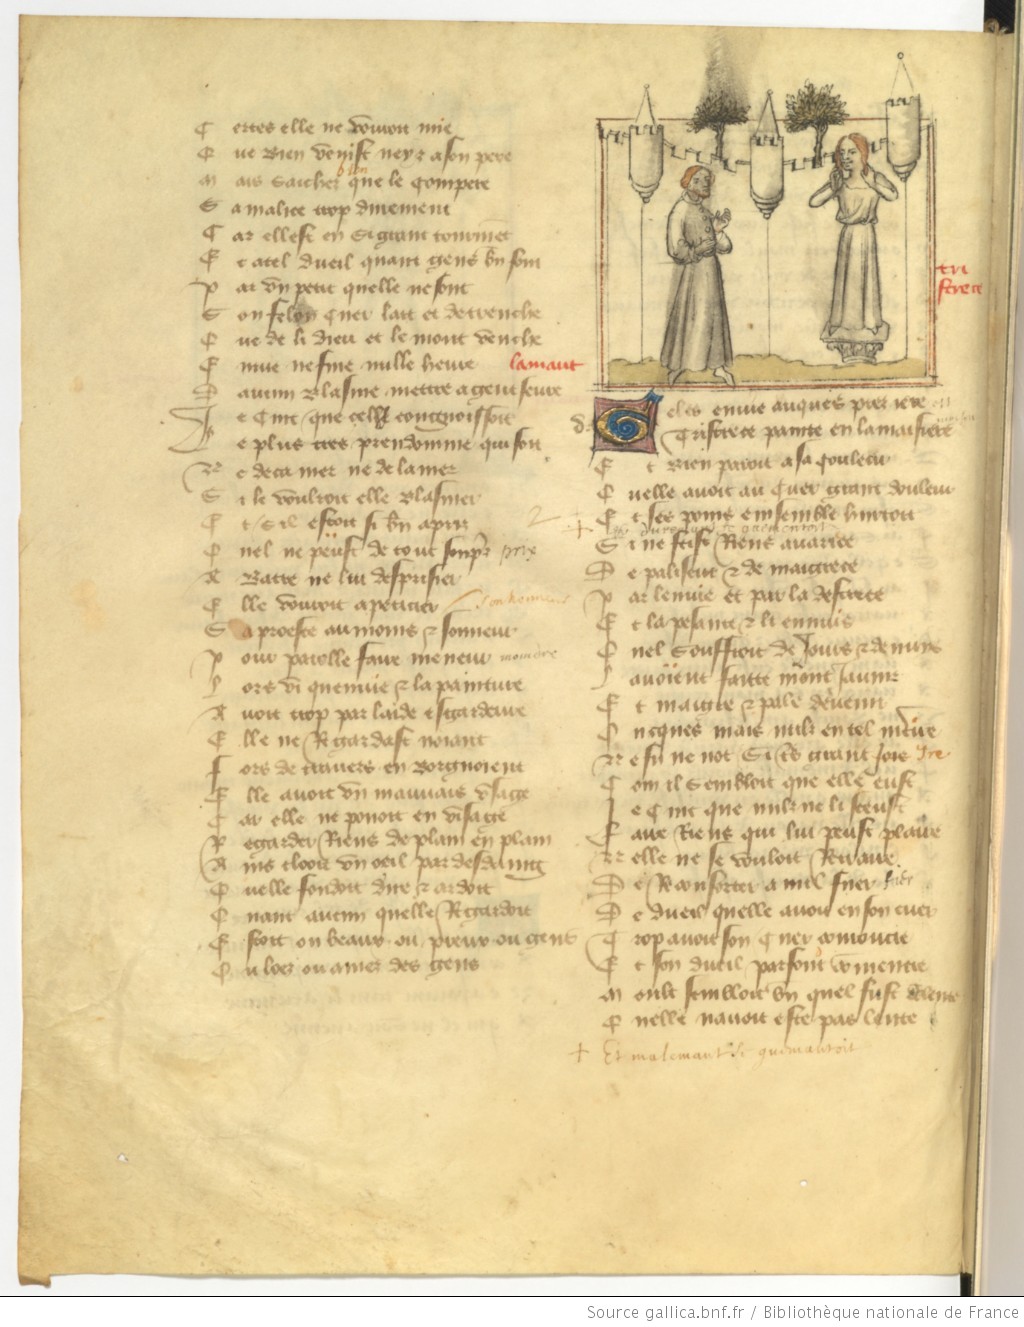 C ertes elle ne vouroit mie
Q ue bien venist neys a son pere
bien
M ais saichez que le compere
S a malice trop durement
C ar elle est en si grant tourment
E t a tel dueil quant gens bn font
P ar vn petit quelle ne font
S on felon cuer lart et detrenche
Q ue de li dieu et le mont venche
E nuie ne fine nulle heure lamant
D aucun blasme mettre a gent seure
J e cuit que celle congnoissoit
e plus tres preudomme qui soit
N e deca mer ne dela mer
S i le vouldroit elle blasmer
E t sil estoit si bn apriz
Q uel ne peust de tout son priz prix
A batre ne lui desprisier
E lle vouroit apeticier son honneur
S a proesce au moins & sonneur
P our parolle faire meneur moindre
L ors vi quenuie & la painture
A uoit trop par laide esgardeure
E lle ne Regardast noiant
F ors de trauers en borgnoient
E lle auoit vn mauuais vsage
C ar elle ne pouoit en visage
R egarder Riens de plain en plain
A ins clooit vn oeil par desdaing
Q uelle fondoit dire & ardoit
Q uant aucun quelle Regardoit
E stoit ou beaux ou preux ou gens
O u loez ou amez des gens
tri
stece
D eles enuie auques pres iere
Tristece painte en la maisiere
E t bien paroit a sa couleur
Q uelle auoit au cuer grant douleur
+ E t ses poins ensemble hurtoit
S i ne feist Riens auarice
D e paliseur & de maigrece
P ar lenuie et par la destrece
E t la pesance & li ennuis
Q uel souffroit de Jours & de nuys
L auoient faitte mont Jaunir
E t maigre & pale deuenir
O ncques mais nulz en tel
N e fu ne not si tres grant Jois Ire
C om il sembloit que elle eust
J e cuit que nulz ne li sceust
F aire Riens qui lui peust plaire
N elle ne se vouloit Retraire
D e Reconforter a nul fuer
D e dueil quelle auoit en son cuer
T rop auoit son cuer couroucie
E t son dueil parfont commencie
M oult sembloit bn quel fust dolente
Q uelle nauoit este pas lente
+ Et malemant se guemantoit
Source gallica.bnf.fr / Bibliothèque nationale de France